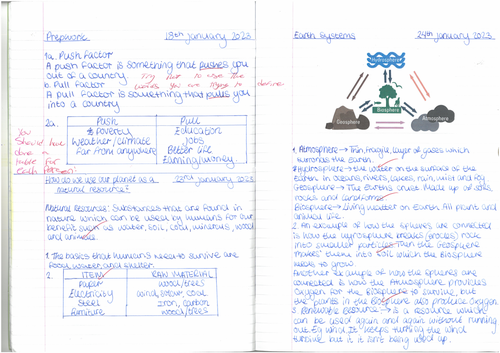 Prepwork 18th January 2023
1a. Push Factor
A push factor is something that pushes you
out of a country
Try not to use the
words you are trying to define.
b. Pull Factor
A pull factor is something that pulls you
into a country
2a. Push Pull
Poverty Education
Weather/climate Jobs
Far from anywhere Better life
Earning/money
You
should have
done a
table for
each person.
How do we use our planet as a 23rd January 2023
natural resource?
Natural Resources: Substances that are found in
nature which can be used by humans for our
benefit such as water, soil, coal, minerals, wood
and animals.
1. The basics that humans need to survive are
food, water and shelter.
2. ITEM RAW MATERIAL
Paper wood/trees
Electricity wind, solar, coal
Steel Iron, carbon
Furniture wood/trees
Earth Systems 24th January 2023
Hydrosphere
Biosphere
Geosphere
Atmosphere
1. Atmosphere → Thin, fragile, layer of gases which
surrounds the Earth.
Hydrosphere → the water on the surface of the
Earth in oceans, rivers, lakes, rain, mist and
Geosphere → The Earth's crust. Made up of
rocks and landforms
Biosphere → Living matter on Earth. All plants and
animal life.
2. An example of how the spheres are connected
is how the hydrosphere breaks rock
into smaller particles. Then the Geosphere
makes them into soil which the biosphere
needs to grow.
Another example of how the spheres are
connected is how the Atmosphere provides
oxygen for the Biosphere to survive, but
the plants in the Biosphere also produce oxygen.
3. Renewable Resource → is a resource which
can be used again and again without running
out. Eg Wind. It keeps turning the wind
turbine but it isn't being used up.